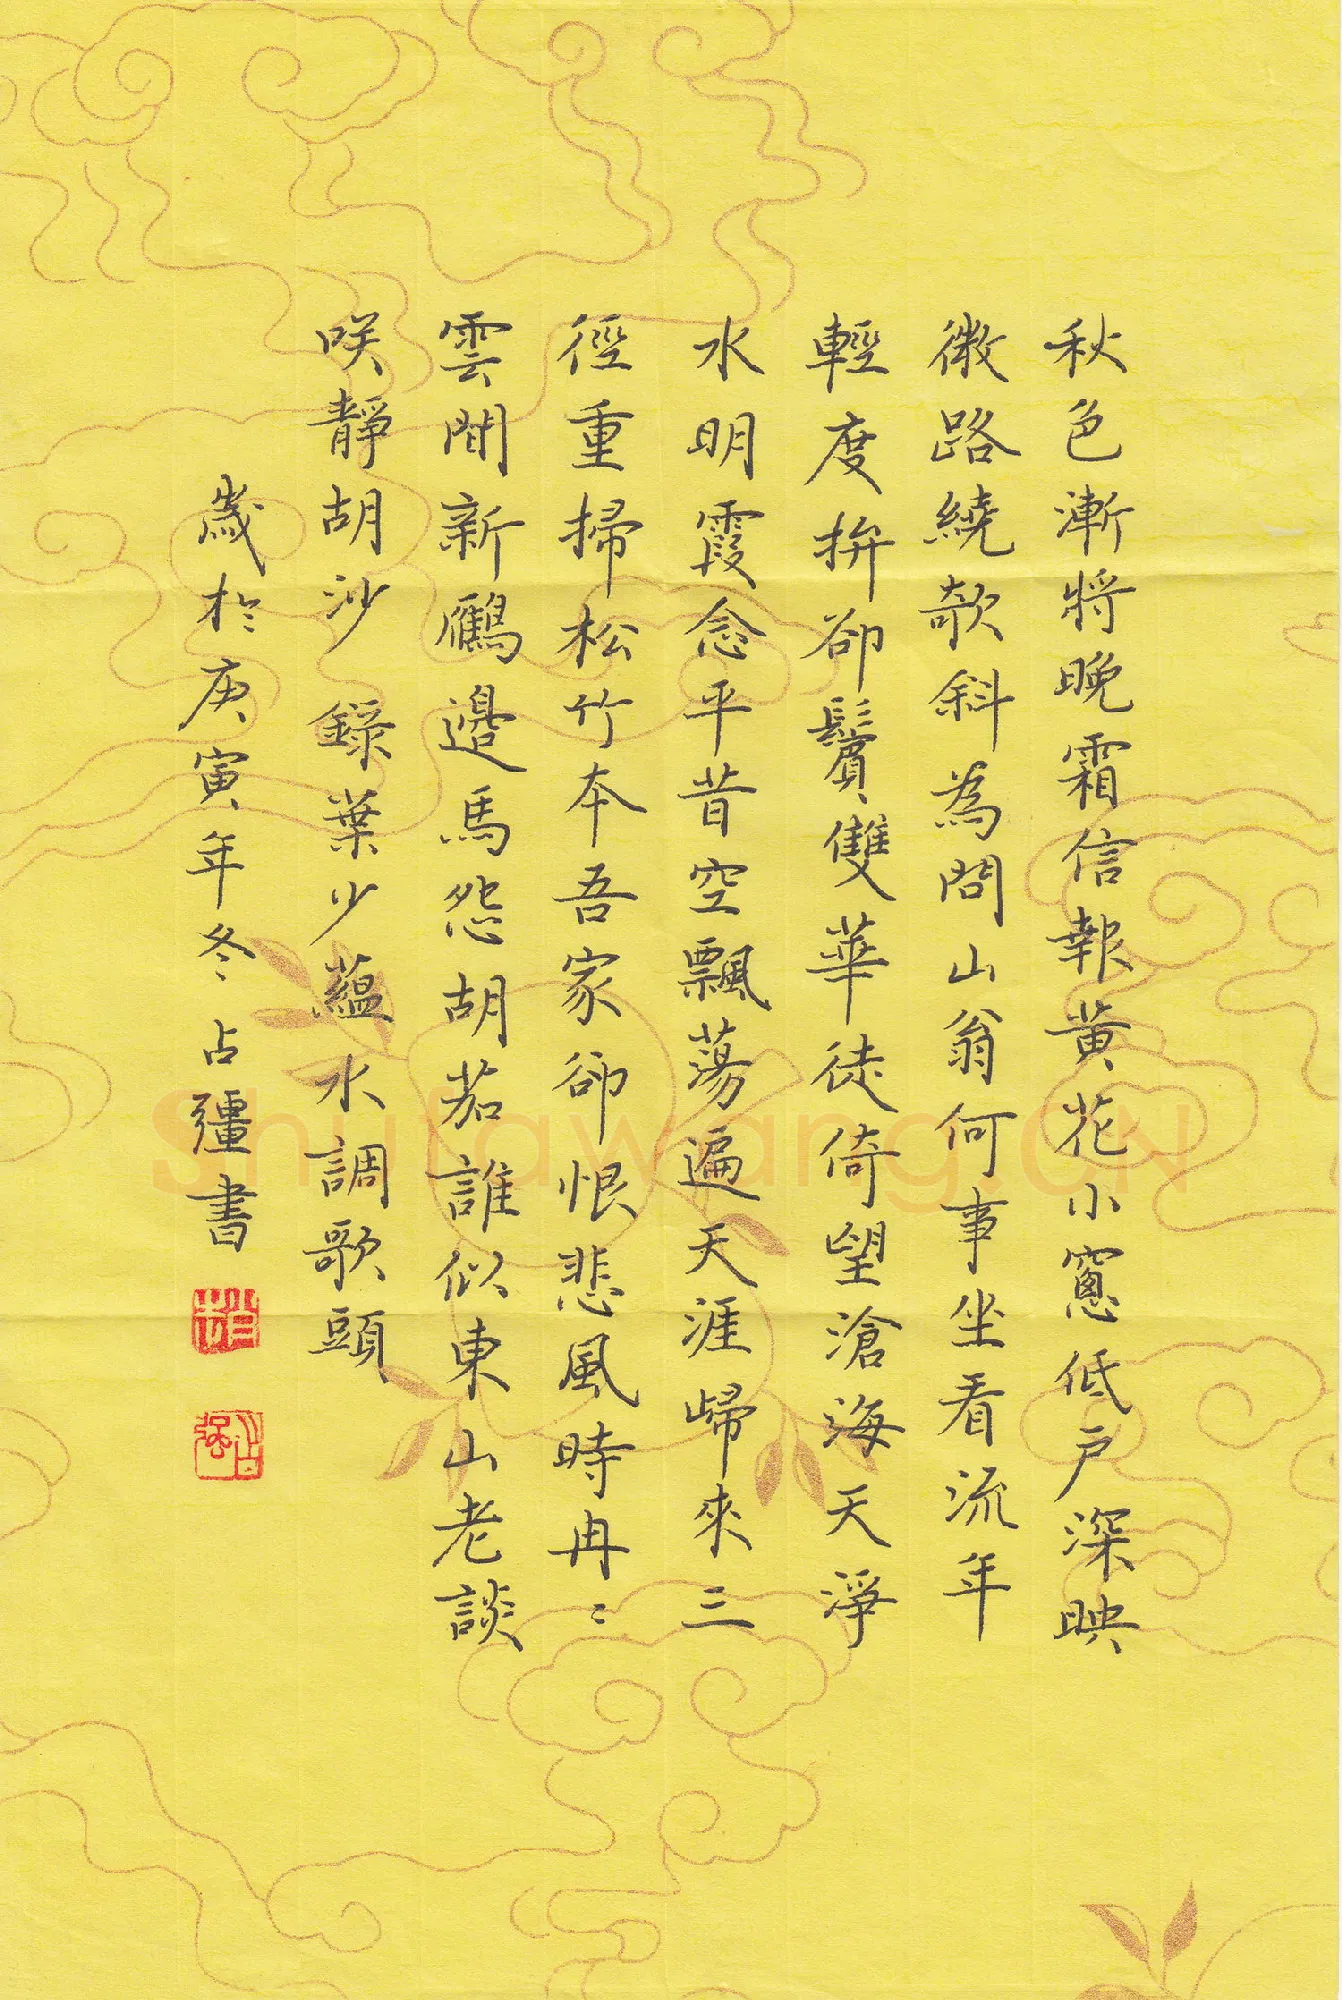 秋色漸將晚霜信報黄花小窻低户深映
微路繞欹斜為問山翁何事坐看流年
輕度拚卻鬢雙華徒倚望滄海天淨
水明霞念平昔空飄蕩遍天涯歸來三
徑重掃松竹本吾家卻恨悲風時冉〻
雲間新鴈邊馬怨胡茄誰似東山老談
咲靜胡沙 錄葉少蘊水調歌頭
歲於庚寅年冬占彊書
占強
Shufawang.CN